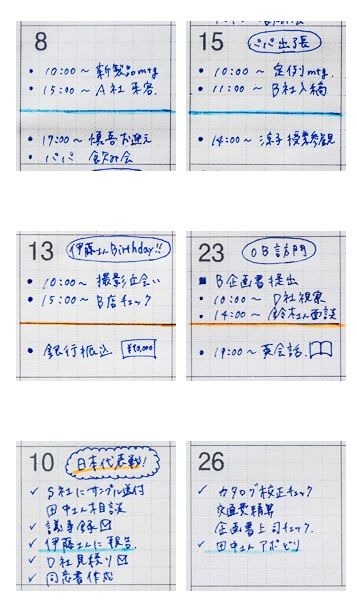 8
• 10:00〜 新製品mtg
• 15:00〜 A社来客.
• 17:00〜 慎吾お迎え
• パパ 飲み会
15
パパ出張
• 10:00〜 定例mtg.
• 11:00〜 B社入稿
• 14:00〜 涼子授業参観
13
伊藤さんBirthday!!
• 10:00〜 撮影立会い
• 15:00〜 B店チェック
• 銀行振込 ¥10,000
23
OB訪問
■ B企画書提出
• 10:00〜 D社視察
• 14:00〜 鈴木さん面談
• 19:00〜 英会話.
10
日本代表戦!
✓ S社にサンプル送付
田中さん相談
✓ 議事録
✓ 伊藤さんに報告
✓ D社見積り
✓ 同意書作成
26
✓ カタログ校正チェック
交通費精算
企画書上司チェック.
✓ 田中さんアポどり